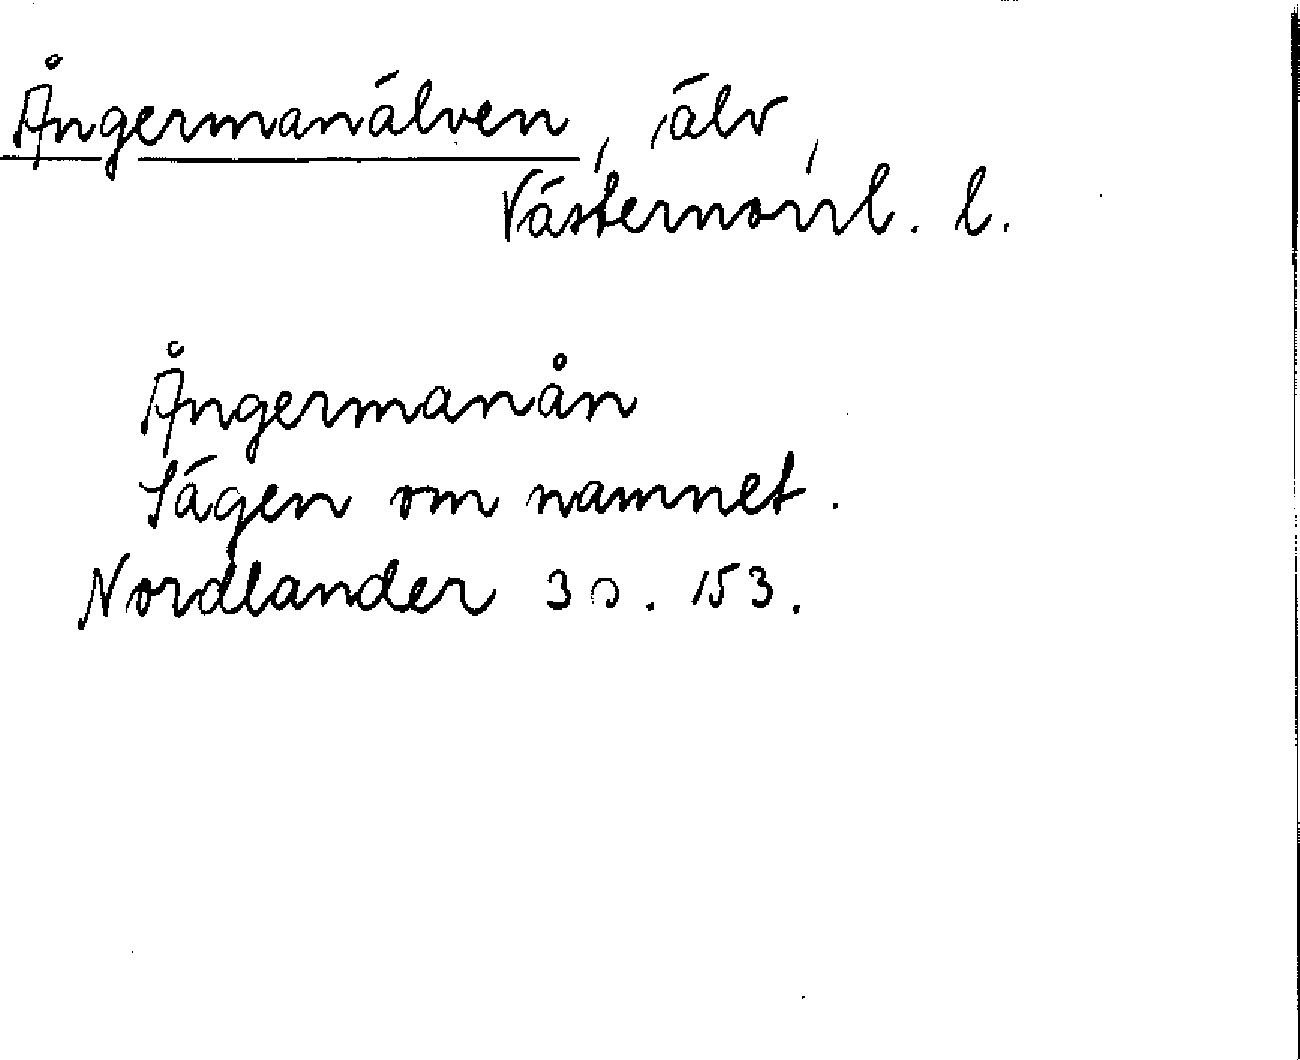 Ångermanälven, älv,
Västernorrl. l.
Ångermanån
Sägen om namnet.
Nordlander 30. 153.